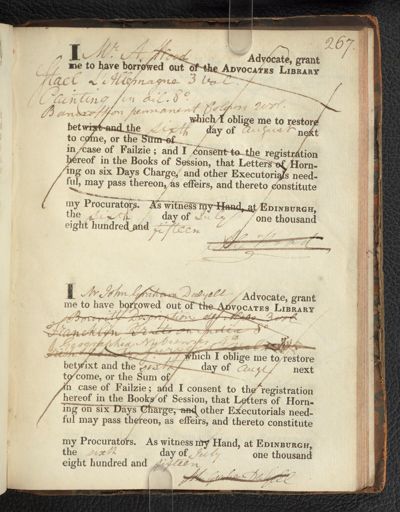 267.
I Mr A Wood Advocate, grant
me to have borrowed out of the ADVOCATES LIBRARY
Stael L'Allemagne 3 vol
8o.
Bancroft on permanent Colours 2 vol.
which I oblige me to restore
betwixt and the sixth day of August next
to come, or the Sum of
in case of Failzie; and I consent to the registration
hereof in the Books of Session, that Letters of Horn-
ing on six Days Charge, and other Executorials need-
ful, may pass thereon, as effeirs, and thereto constitute
my Procurators. As witness my Hand, at EDINBURGH,
the sixth day of July one thousand
eight hundred and fifteen
A. Wood
I Mr John Graham Dalyell Advocate, grant
me to have borrowed out of the ADVOCATES LIBRARY
Francklin
which I oblige me to restore
betwixt and the sixth day of Augt next
to come, or the Sum of
in case of Failzie; and I consent to the registration
hereof in the Books of Session, that Letters of Horn-
ing on six Days Charge, and other Executorials need-
ful may pass thereon, as effeirs, and thereto constitute
my Procurators. As witness my Hand, at EDINBURGH,
the sixth day of July one thousand
eight hundred and fifteen
Dalyell